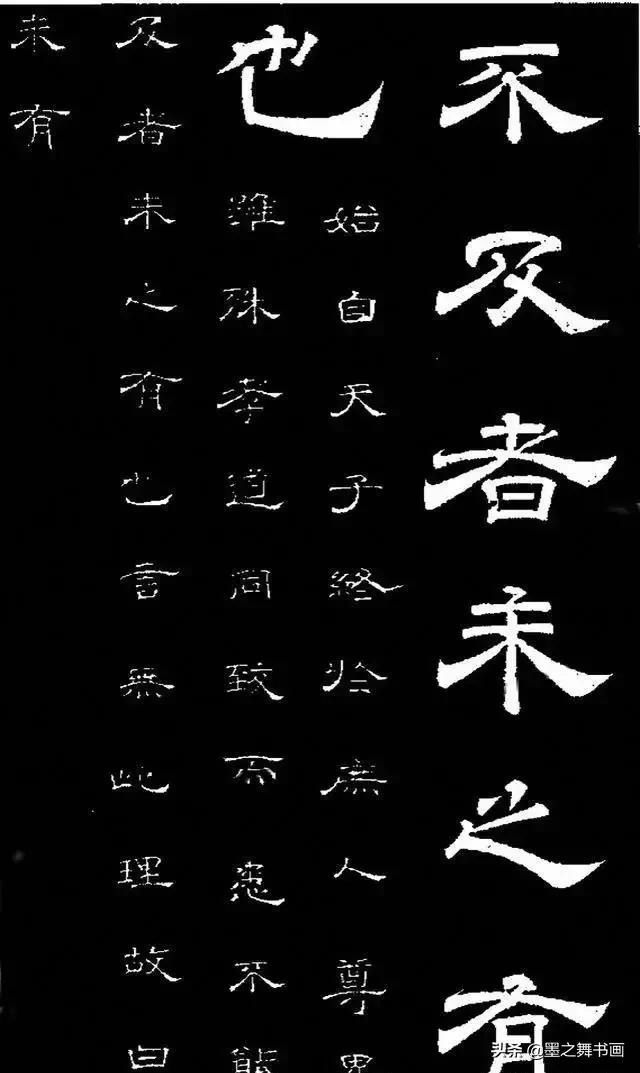 不及者未之有
也
始自天子終於庶人尊卑
雖殊孝道同致而患不能
及者未之有也言無此理故曰
未有
头条 @墨之舞书画